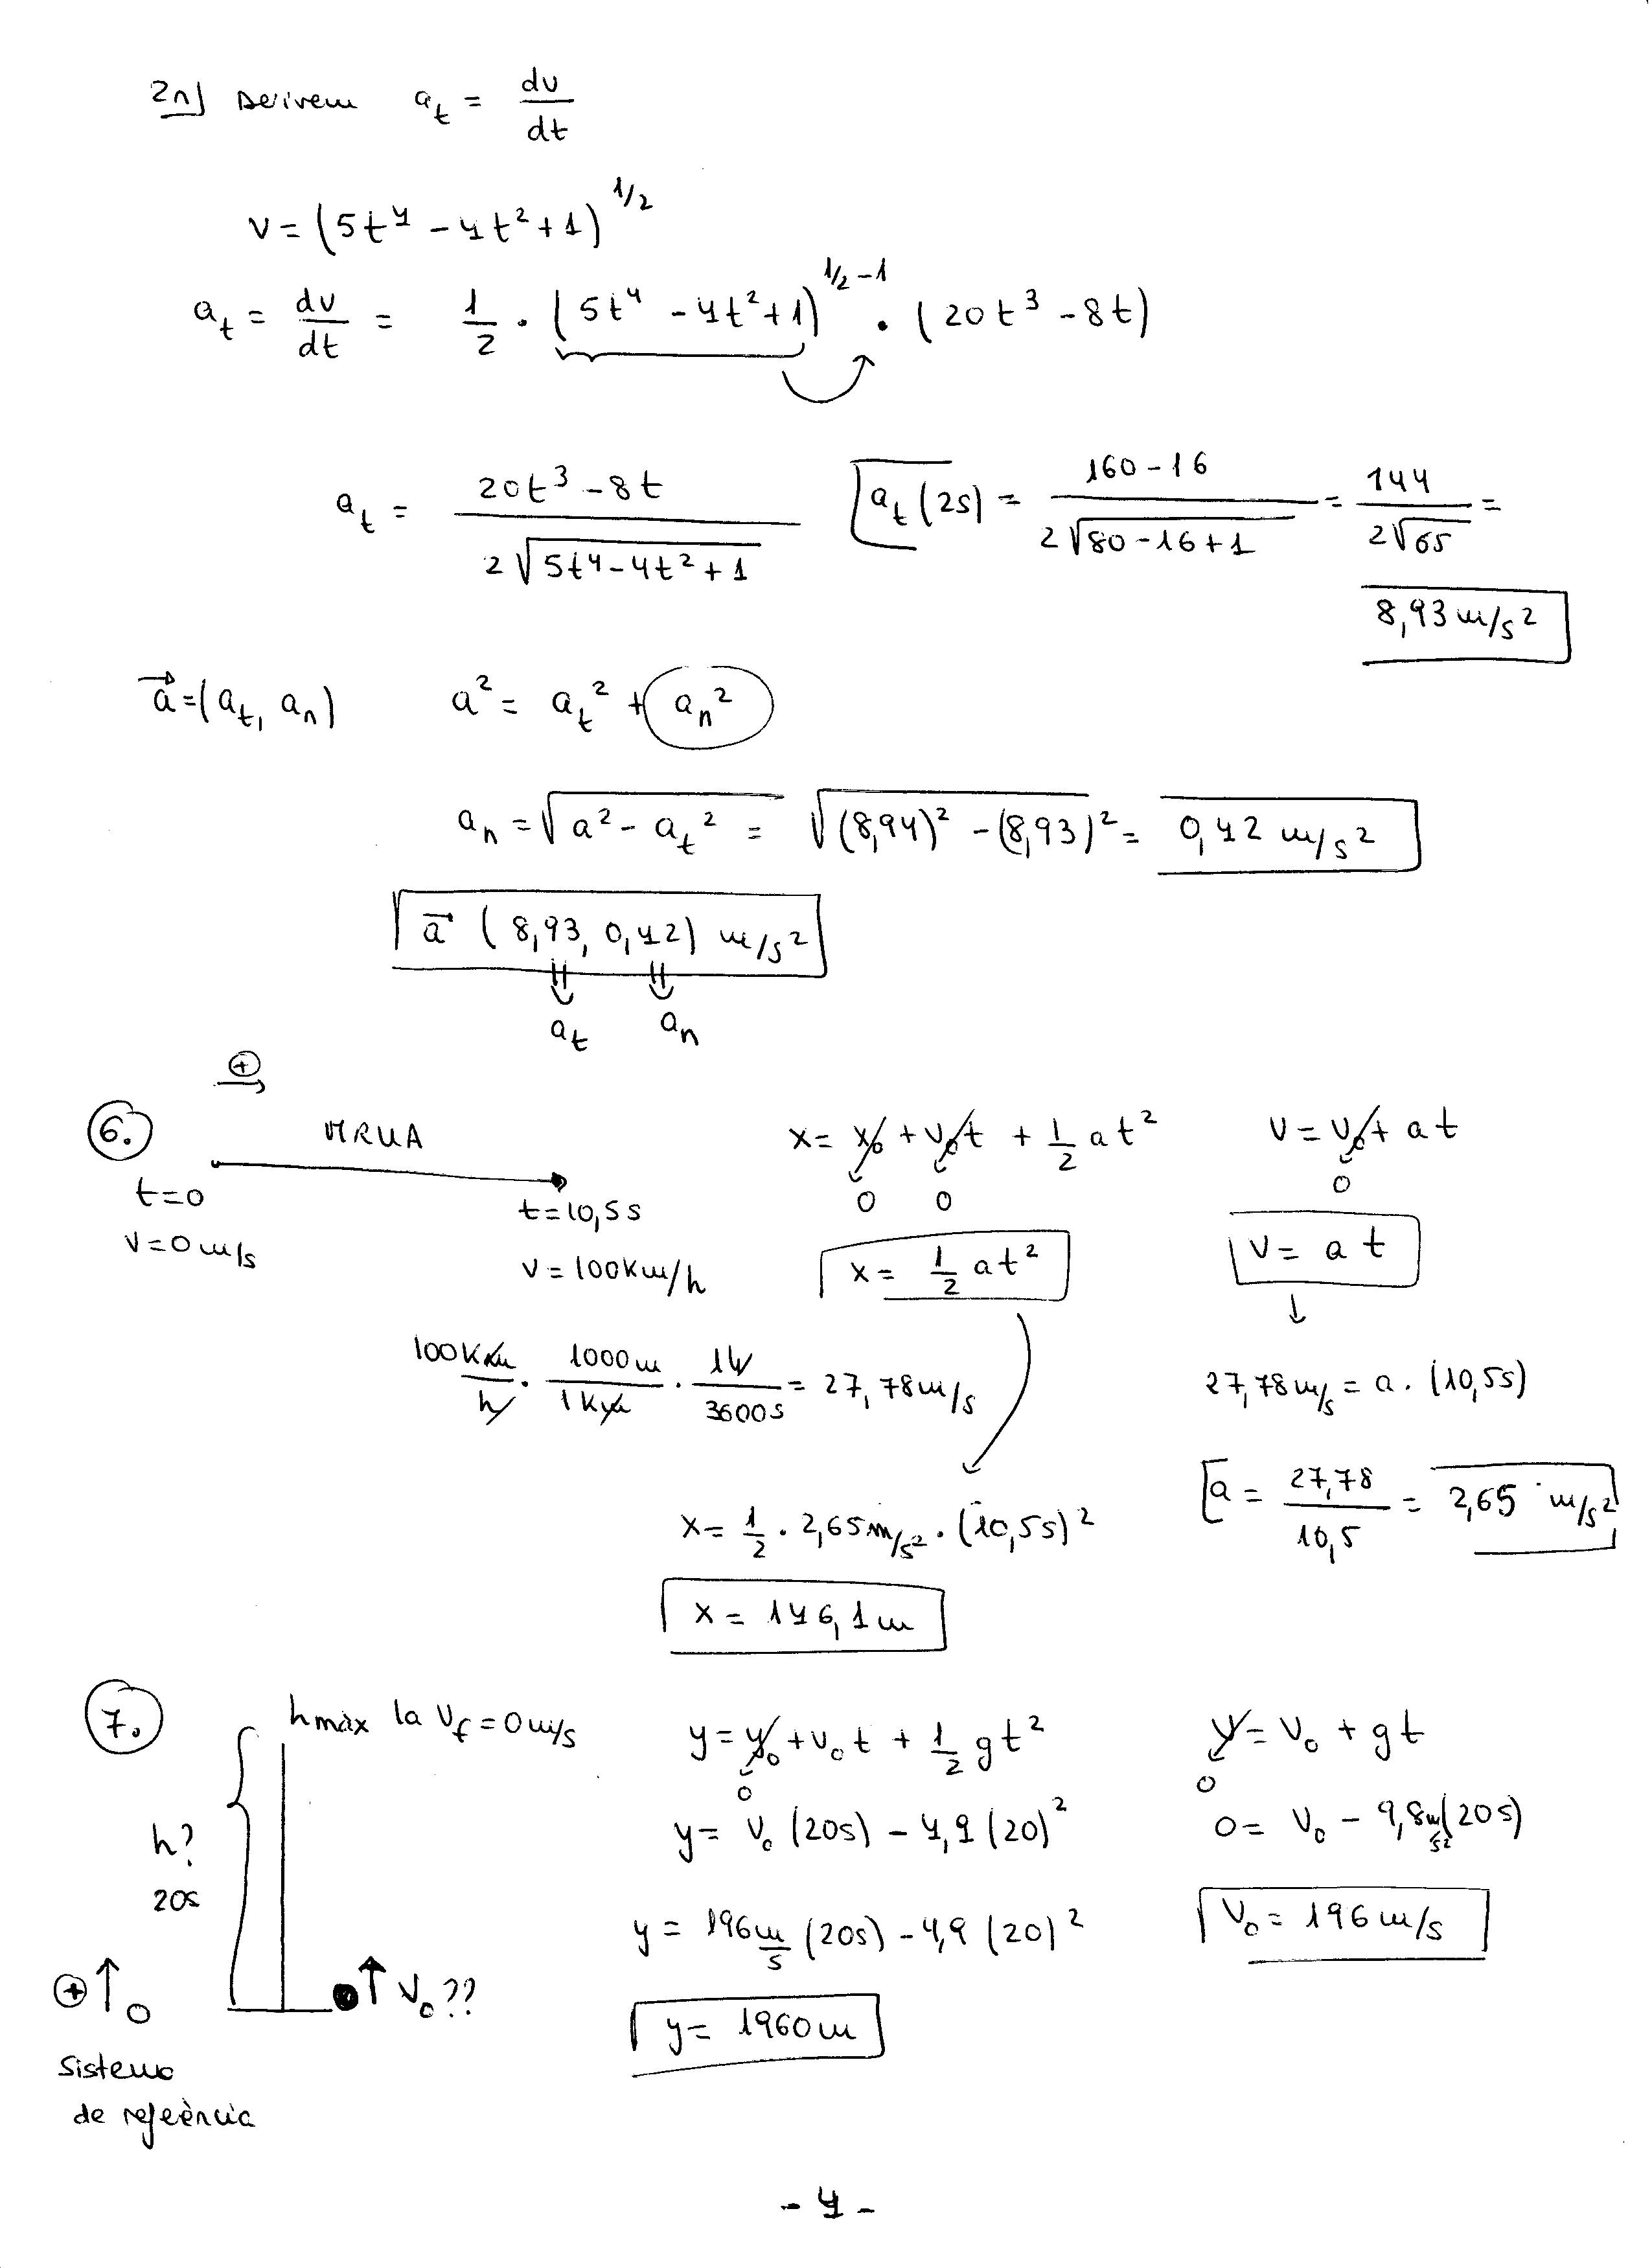 2n) Derivem a_t = dv/dt
v = (5t⁴ - 4t² + 1)^1/2
a_t = dv/dt = 1/2 · (5t⁴ - 4t² + 1)^1/2-1 · (20t³ - 8t)
a_t = 20t³ - 8t / 2√5t⁴-4t²+1
a_t (2s) = 160-16 / 2√80-16+1 = 144 / 2√65 =
8,93 m/s²
a⃗ = (a_t, a_n) a² = a_t² + a_n²
a_n = √a² - a_t² = √(8,94)² - (8,93)² = 0,42 m/s²
a⃗ (8,93, 0,42) m/s²
a_t a_n
+
6. MRUA
t=0
v=0 m/s
t=10,5s
v=100 km/h
x = x₀ + v₀t + 1/2 at²
0 0
v = v₀ + at
0
x = 1/2 at²
v = a t
100 km/h · 1000 m/1 km · 1h/3600 s = 27,78 m/s
27,78 m/s = a · (10,5s)
a = 27,78/10,5 = 2,65 m/s²
x = 1/2 · 2,65 m/s² · (10,5s)²
x = 146,1 m
7. hmàx la v_f = 0 m/s
h?
20s
+ 0
v₀??
Sistema
de referència
y = y₀ + v₀t + 1/2 gt²
0
y = v₀ (20s) - 4,9 (20)²
y = 196 m/s (20s) - 4,9 (20)²
y = 1960 m
v = v₀ + gt
0
0 = v₀ - 9,8 m/s² (20s)
v₀ = 196 m/s
- 4 -